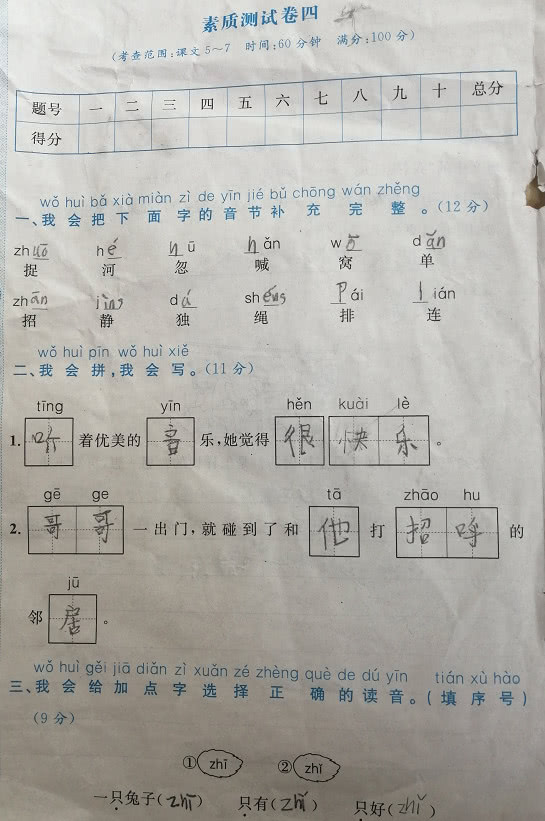 素质测试卷四
(考查范围:课文5~7 时间:60分钟 满分:100分)
题号 一 二 三 四 五 六 七 八 九 十 总分
得分
wǒ huì bǎ xià miàn zì de yīn jié bǔ chōng wán zhěng
一、我会把下面字的音节补充完整。(12分)
zhuō hé hū hǎn wō dān
捉 河 忽 喊 窝 单
zhān jìng dú shéng pái lián
招 静 独 绳 排 连
wǒ huì pīn wǒ huì xiě
二、我会拼,我会写。(11分)
tīng yīn hěn kuài lè
1. 听 着优美的 音 乐,她觉得 很 快乐 。
gē ge tā zhāo hu
2. 哥哥 一出门,就碰到了和 他 打 招呼 的
jū
邻 居 。
wǒ huì gěi jiā diǎn zì xuǎn zé zhèng què de dú yīn tián xù hào
三、我会给加点字选择正确的读音。(填序号)
(9分)
① zhī ② zhǐ
一只兔子(zhī) 只有(zhǐ) 只好(zhǐ)